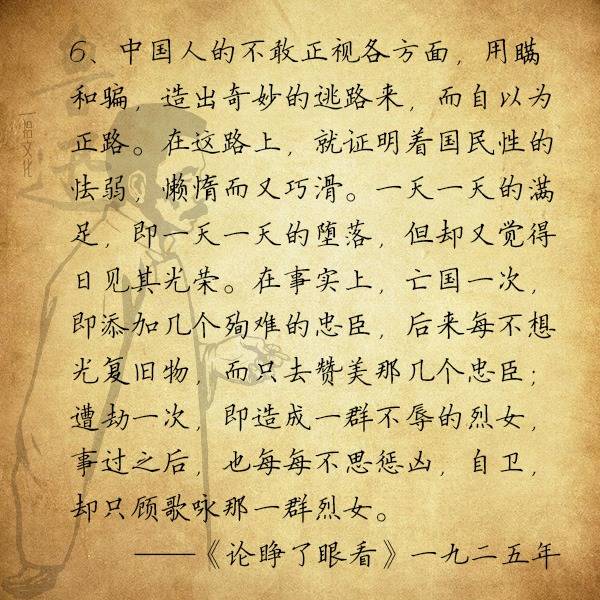 6、中国人的不敢正视各方面，用瞒
和骗，造出奇妙的逃路来，而自以为
正路。在这路上，就证明着国民性的
怯弱，懒惰而又巧滑。一天一天的满
足，即一天一天的堕落，但却又觉得
日见其光荣。在事实上，亡国一次，
即添加几个殉难的忠臣，后来每不想
光复旧物，而只去赞美那几个忠臣；
遭劫一次，即造成一群不辱的烈女，
事过之后，也每每不思惩凶，自卫，
却只顾歌咏那一群烈女。
——《论睁了眼看》一九二五年
拾文化